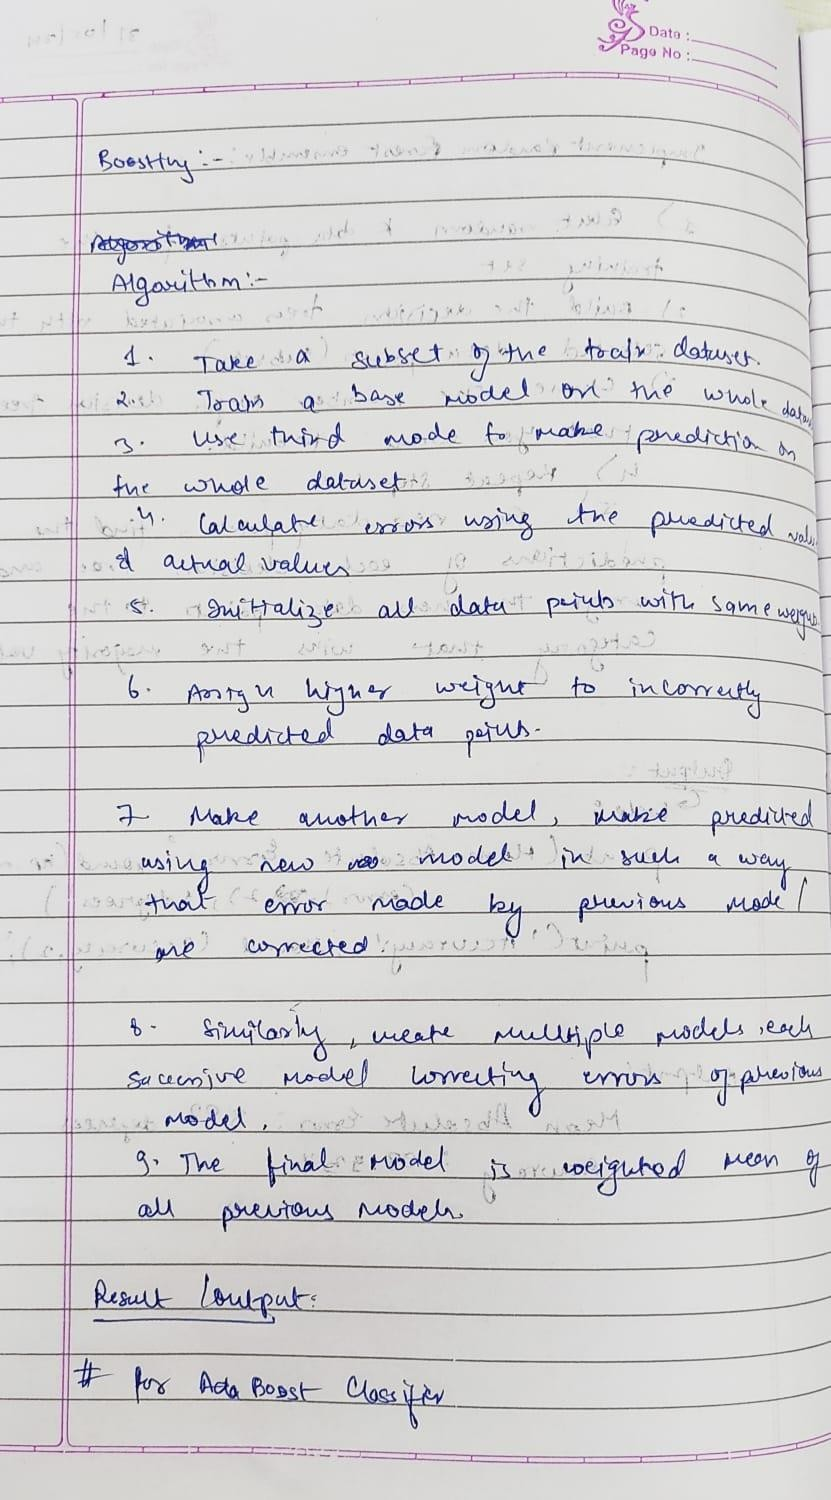 Date :
Page No :
Boosting :-
Algorithm
Algorithm :-
1. Take a subset of the train dataset.
2. Train a base model on the whole data
3. Use third mode to make prediction on
the whole dataset
4. Calculate errors using the predicted value
& actual values
5. Initialize all data points with same weight
6. Assign higher weight to incorrectly
predicted data points.
7 Make another model, make predicted
using new model in such a way
that error made by previous model
are corrected.
8. Similarly, create multiple models, each
successive model correcting errors of previous
model.
9. The final model is weighted mean of
all previous models.
Result / output:
# for Ada Boost Classifier